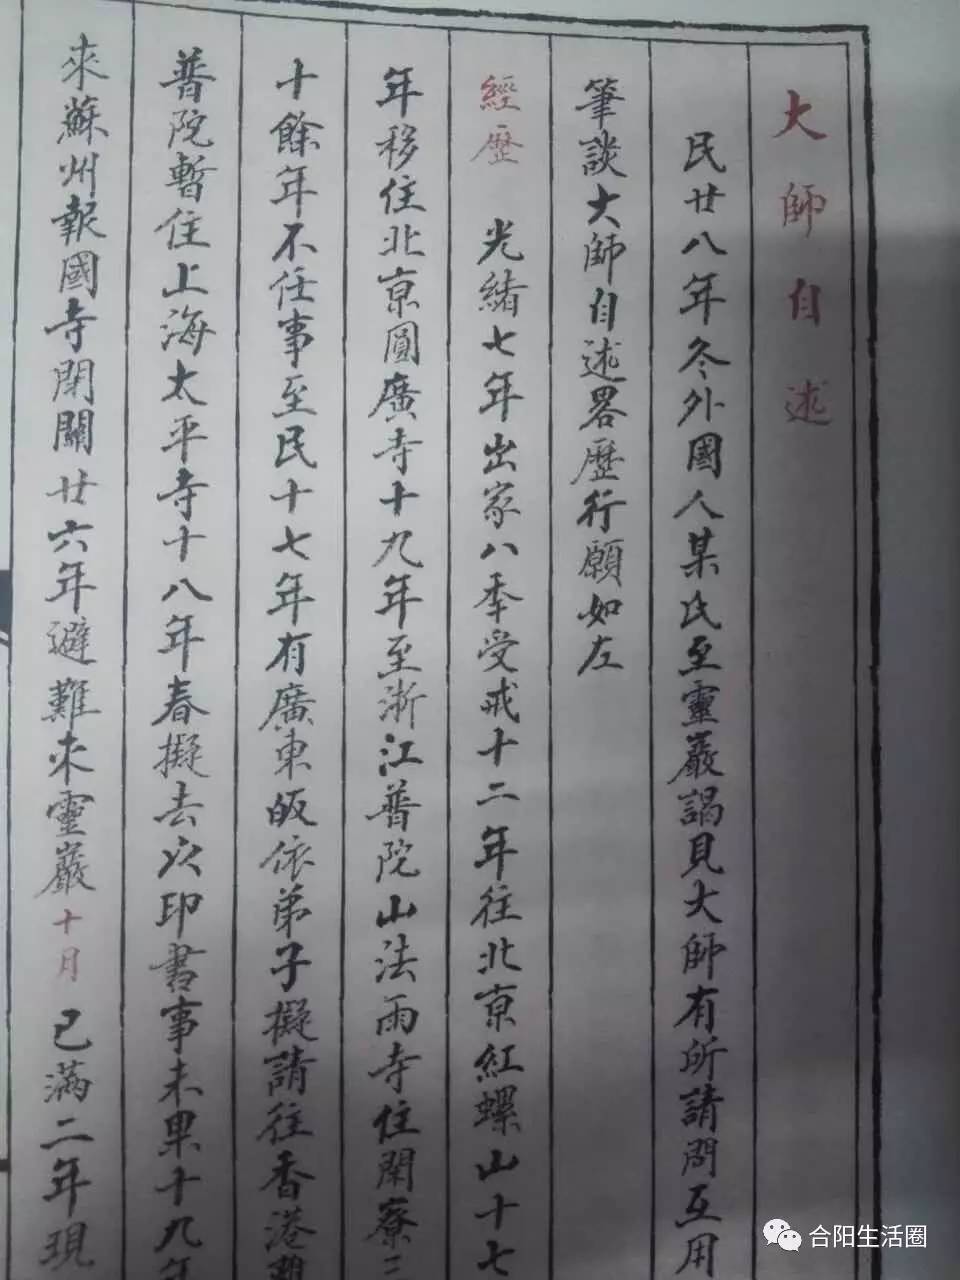 大師自述
民廿八年冬外國人某氏至靈巖謁見大師有所請問互用
筆談大師自述畧歷行願如左
經歷 光緒七年出家八季受戒十二年往北京紅螺山十七
年移住北京圓廣寺十九年至浙江普陀山法雨寺住閒寮三
十餘年不任事至民十七年有廣東皈依弟子擬請往香港離
普陀暫住上海太平寺十八年春擬去以印書事未果十九年
來蘇州報國寺閉關廿六年避難來靈巖十月已滿二年現
合阳生活圈